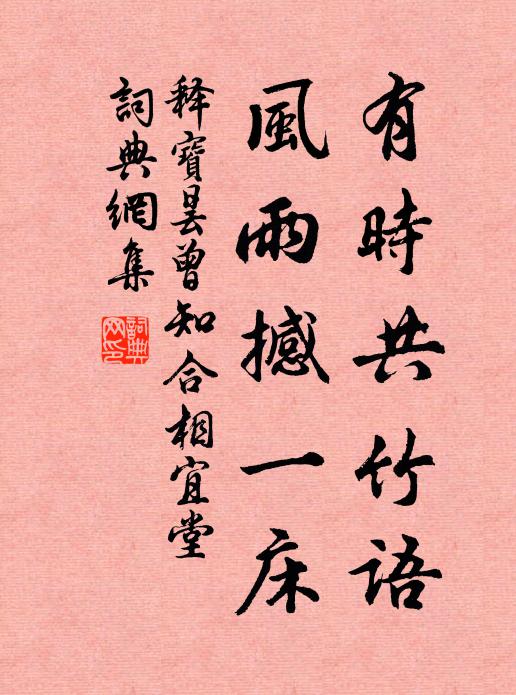 有時共竹語
風雨撼一床
释寶曇曾知合相宜堂
詞典網集
詞典网印